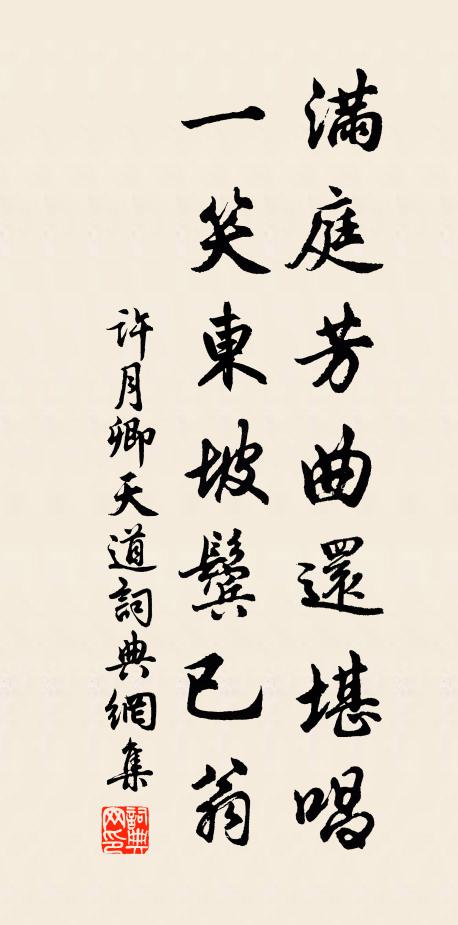 滿庭芳曲還堪唱
一笑東坡鬢已翁
許月卿天道詞典網集
詞典網印